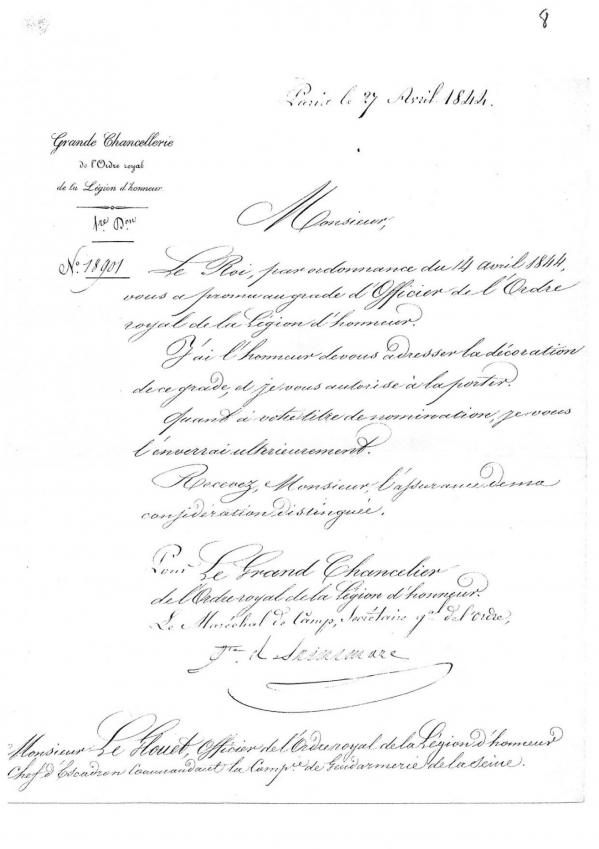 8
Paris le 27 Avril 1844.
Grande Chancellerie
de l'Ordre royal
de la Légion d'honneur
1re Don
No. 18901
Monsieur,
Le Roi, par ordonnance du 14 avril 1844,
vous a promu au grade d'Officier de l'Ordre
royal de la Légion d'honneur.
J'ai l'honneur de vous adresser la décoration
de ce grade, et je vous autorise à la porter.
Quant à votre titre de nomination, je vous
l'enverrai ultérieurement.
Recevez, Monsieur, l'assurance de ma
considération distinguée.
Pour Le Grand Chancelier
de l'Ordre royal de la Légion d'honneur
Le Maréchal de Camp, Secrétaire gal de l'ordre,
Monsieur Le Houet, Officier de l'Ordre royal de la Légion d'honneur
Chef d'Escadron Commandant la Compie de Gendarmerie de la Seine.